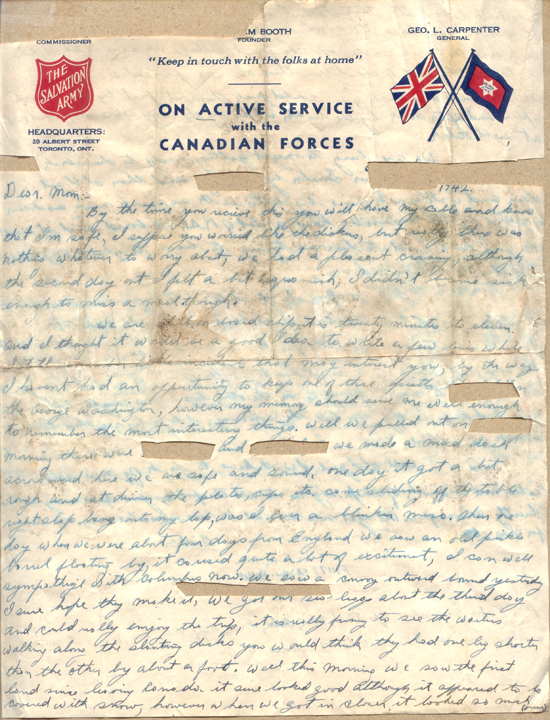 COMMISSIONER
M BOOTH
FOUNDER
GEO. L. CARPENTER
GENERAL
"Keep in touch with the folks at home"
THE
SALVATION
ARMY
ON ACTIVE SERVICE
with the
CANADIAN FORCES
HEADQUARTERS:
20 ALBERT STREET
TORONTO, ONT.
1942.
Dear Mom:-
By the time you recieve this you will have my cable and know
that I'm safe, I suppose you worried like the dickens, but really there was
nothing whatever to worry about, we had a pleasant crossing, although
the second day out I felt a bit squeamish, I didn't become sick
enough to miss a meal though.
We are still on board ship, it is twenty minutes to eleven,
and I thought it would be a good idea to write a few while
that may interest you, by the way
I havent had an opportunity to keep one of these
the George Washington, however my memory should serve me well enough
to remember the most interesting things. Well we pulled out on
morning there were and we made a mad dash
across and here we are safe and sound, one day it got a bit
rough and at dinner the plates, cups etc. came sliding off the table
right slap bang into my lap, was I ever a blinkin mess. Then one
day when we were about four days from England we saw an old pickle
barrel floating by, it caused quite a lot of excitement, I can well
sympathize with Columbus now. We saw a convoy outward bound yesterday
I sure hope they make it, We got our sea legs about the third day
and could really enjoy the trip, it is really funny to see the waiters
walking along the slanting decks you would think they had one leg shorter
than the other by about a foot. Well this morning we saw the first
land since leaving Canada. it sure looked good although it appeared to be
covered with snow, however when we got in closer it looked so much
(over)